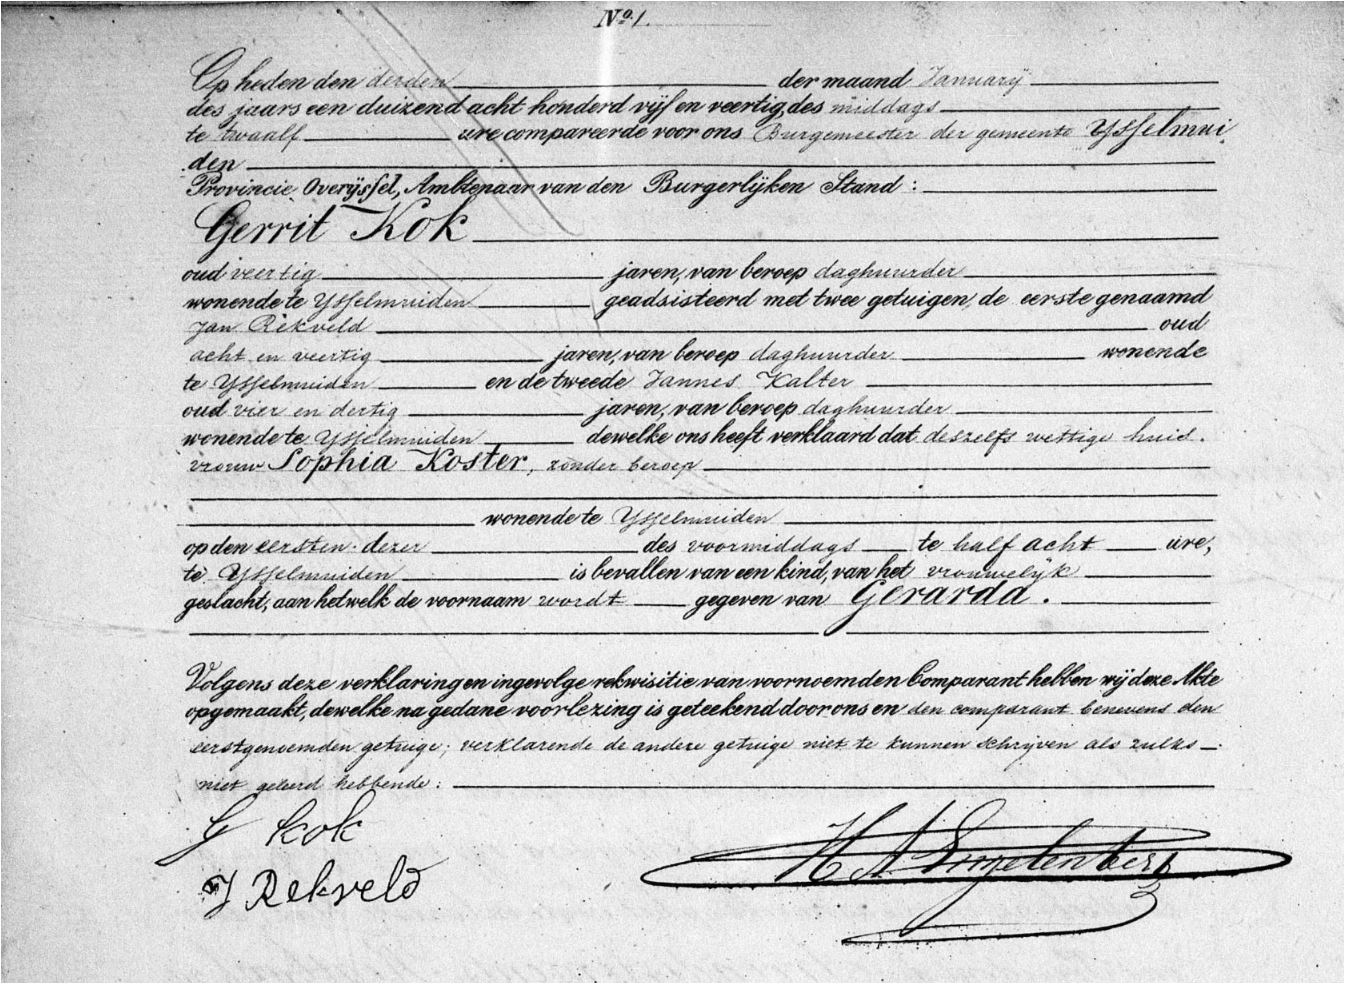 No. 1.
Op heden den derden der maand Januarij
des jaars een duizend acht honderd vijf en veertig, des middags
te twaalf ure compareerde voor ons Burgemeester der gemeente IJsselmui
den
Provincie Overijssel, Ambtenaar van den Burgerlijken Stand:
Gerrit Kok
oud veertig jaren, van beroep daghuurder
wonende te IJsselmuiden geadsisteerd met twee getuigen, de eerste genaamd
Jan Rekveld oud
acht en veertig jaren, van beroep daghuurder wonende
te IJsselmuiden en de tweede Jannes Kalter
oud vier en dertig jaren, van beroep daghuurder
wonende te IJsselmuiden dewelke ons heeft verklaard dat deszelfs wettige huis.
vrouw Sophia Koster, zonder beroep
wonende te IJsselmuiden
op den eersten dezer des voormiddags te half acht ure,
te IJsselmuiden is bevallen van een kind, van het vrouwelijk
geslacht, aan hetwelk de voornaam wordt gegeven van Gerarda.
Volgens deze verklaring en ingevolge rekwisitie van voornoemden Comparant hebben wij deze Akte
opgemaakt, dewelke na gedane voorlezing is geteekend door ons en den comparant benevens den
eerstgenoemden getuige; verklarende de andere getuige niet te kunnen schrijven als zulks
niet geleerd hebbende:
G Kok
J Rekveld
H A